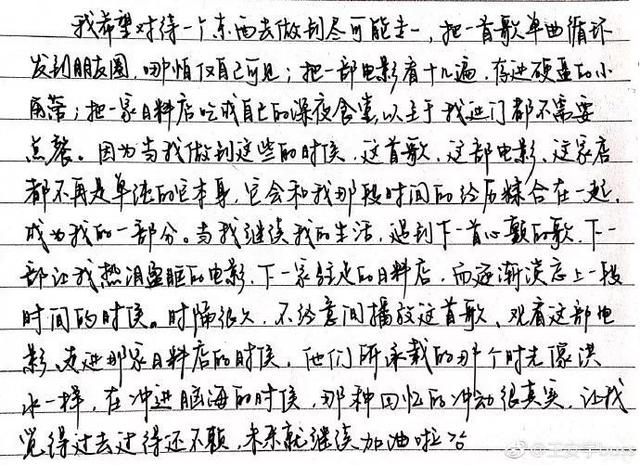 我希望对待一个东西去做到尽可能专一，把一首歌单曲循环
发到朋友圈，哪怕仅自己可见；把一部电影看十几遍，存进硬盘的小
角落；把一家日料店吃成自己的深夜食堂，以至于我进门都不需要
点餐。因为当我做到这些的时候，这首歌、这部电影、这家店
都不再是单纯的它本身，它会和我那段时间的经历糅合在一起，
成为我的一部分。当我继续我的生活，遇到下一首心颤的歌，下一
部让我热泪盈眶的电影，下一家驻足的日料店，而逐渐淡忘上一段
时间的时候。时隔很久，不经意间播放这首歌、观看这部电
影、走进那家日料店的时候，他们所承载的那个时光像洪
水一样，在冲进脑海的时候，那种回忆的冲动很真实，让我
觉得过去过得还不赖，未来就继续加油啦